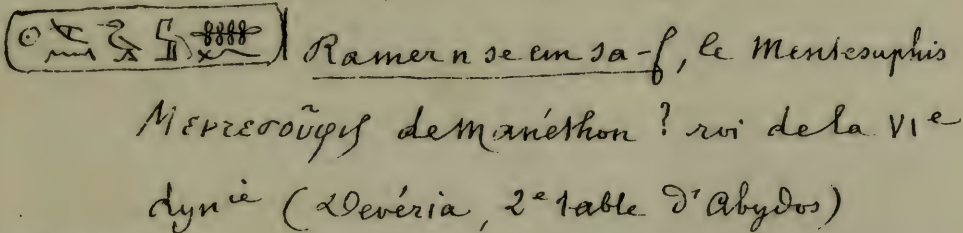 Ramer n se em sa-f, le Mentesuphis
Μεντεσοῦφις de Manéthon ? roi de la VIe
dynie (Devéria, 2e table d'Abydos)